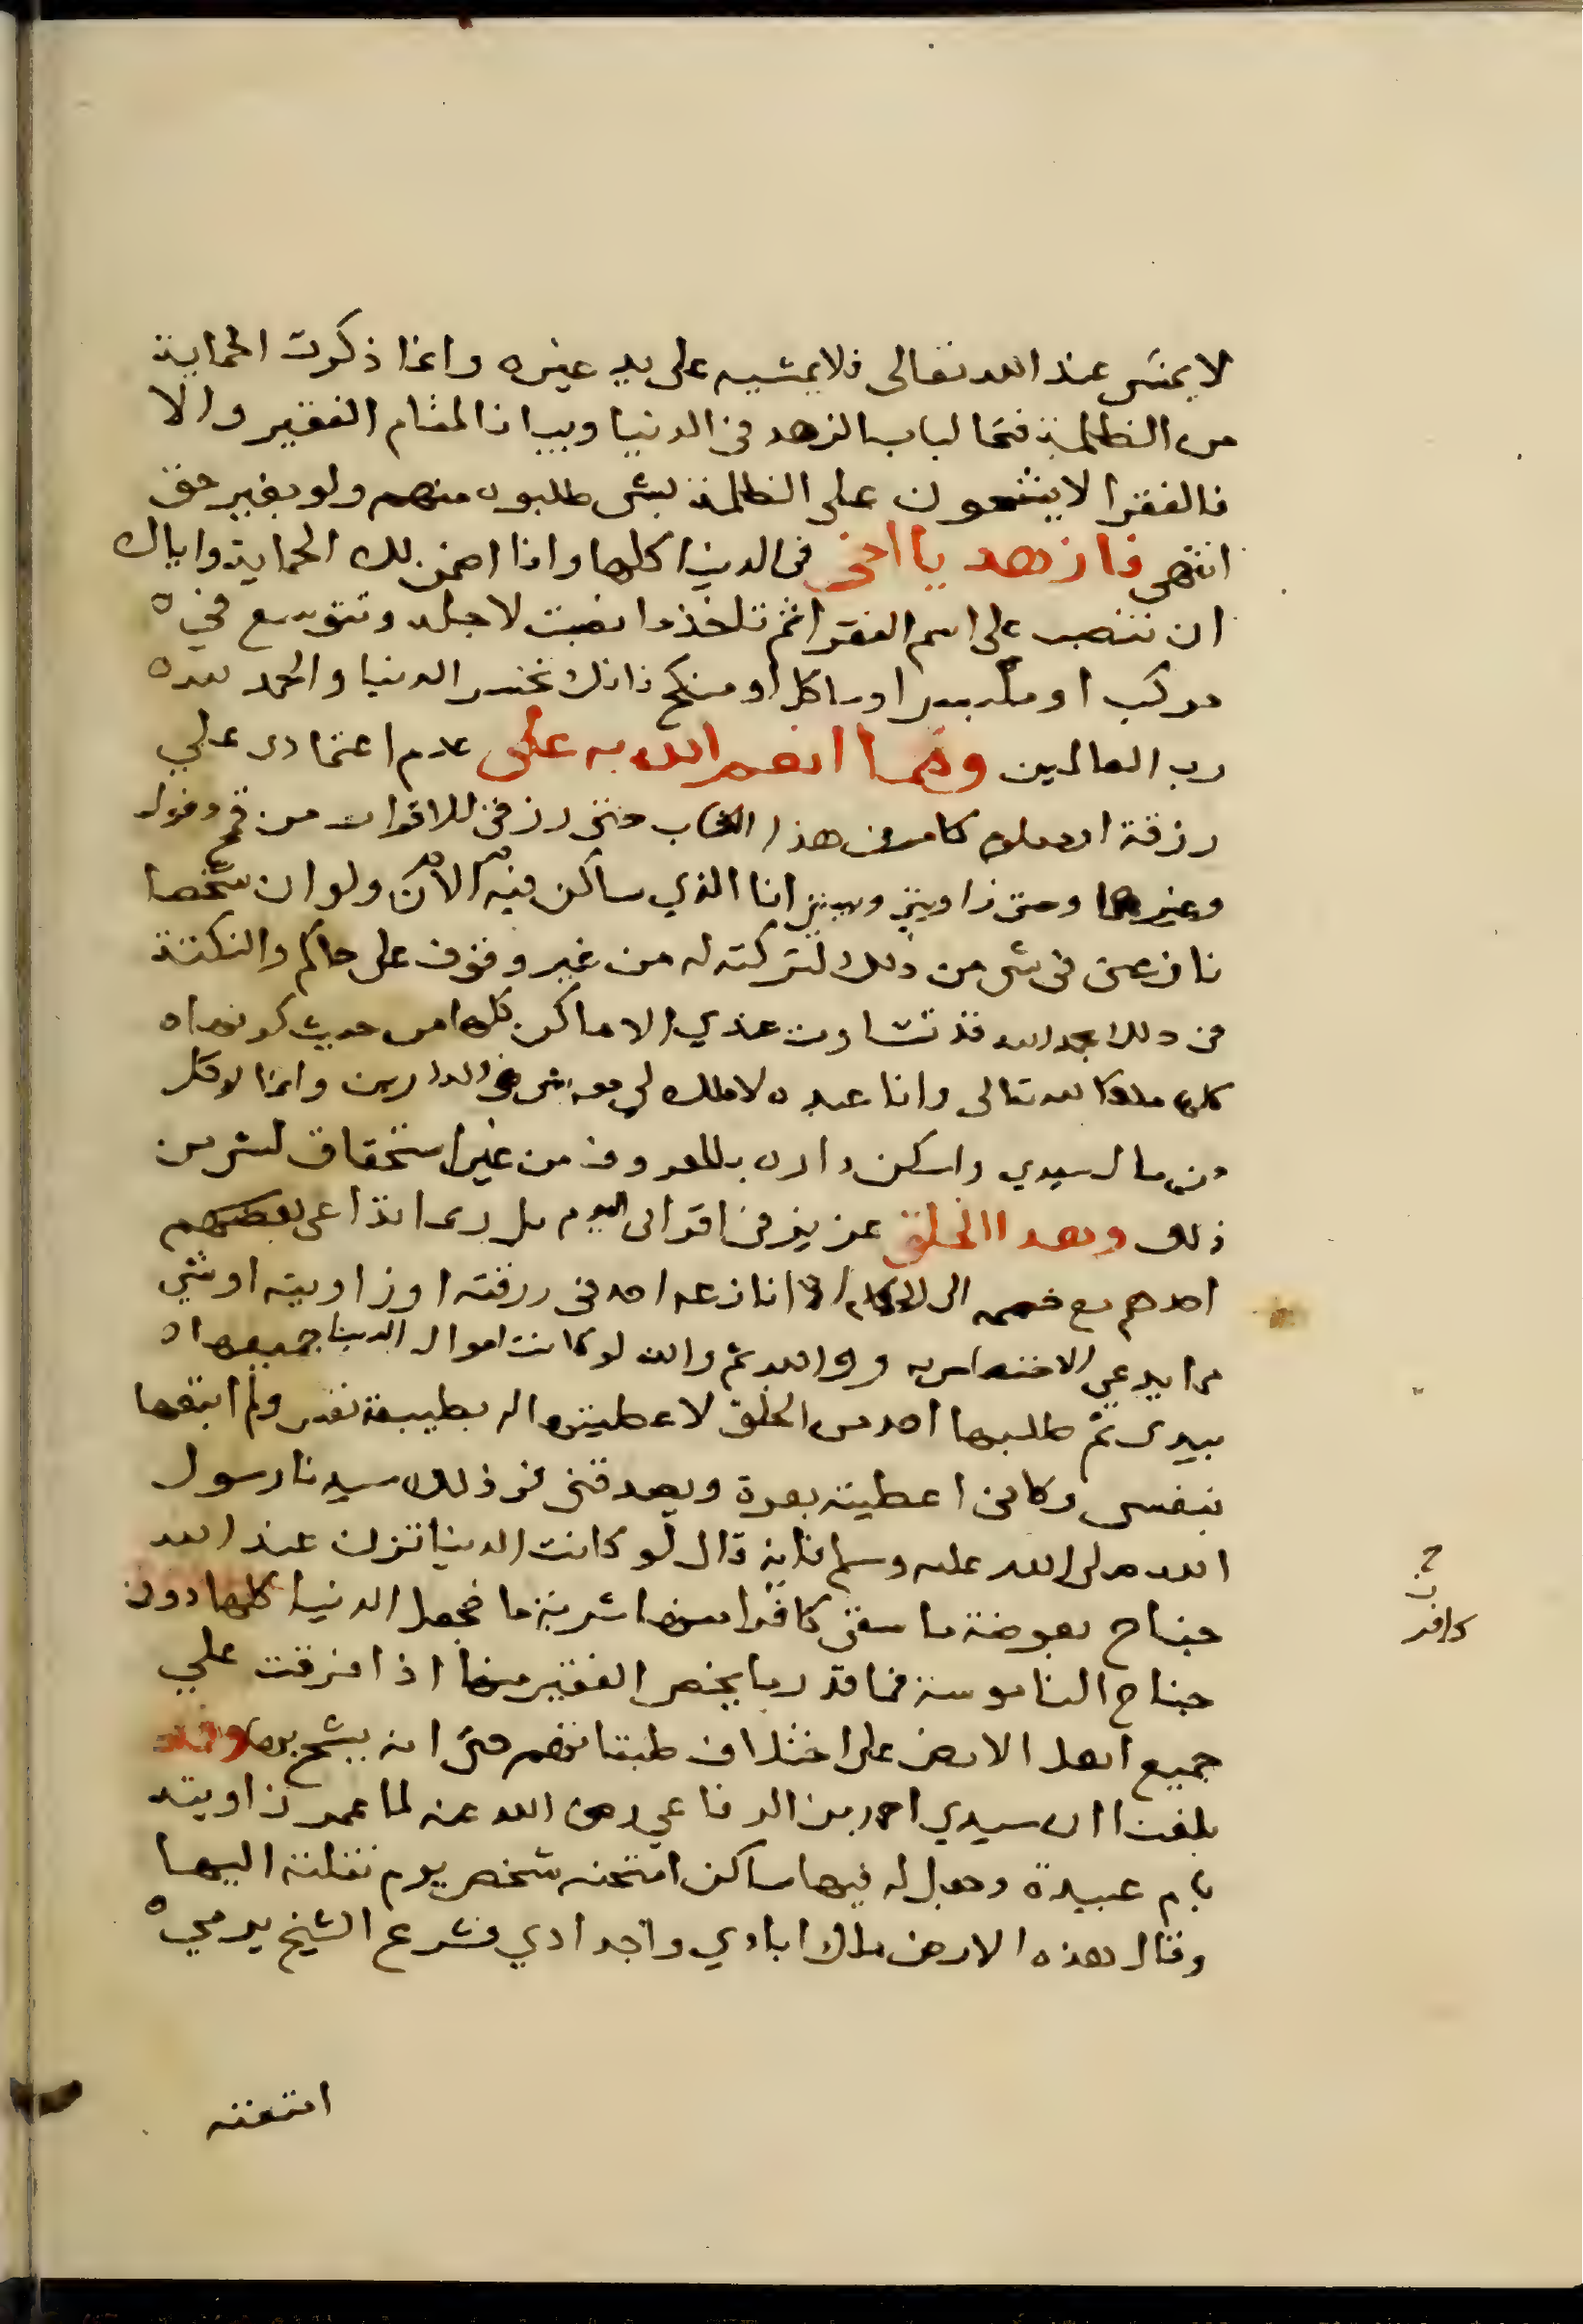 لا يمشى عند الله تعالى فلا يمشيه على يد غيره وانما ذكرت الحماية
من الظلمة فتحا لباب الزهد في الدنيا وبيانا لمقام الفقير والا
فالفقرا لا يشحون على الظلمة بشى طلبوه منهم ولو بغير حق
انتهى فازهد يا اخى فى الدنيا كلها واذا لك الحماية واياك
ان تنصب على اسم الفقرا ثم تاخذ ما نصبت لاجله وتتوسع في
مركب او ملبس او ماكل او منكح فانك تخسر الدنيا والحمد لله
رب العالمين ومما انعم الله به على عدم اعتمادى علي
رزقة او معلوم كما مر في هذا الكتاب حتى رزقتى للاقوات من قمح وفول
وغيرهما وحتى زاويتى وبيتى انا الذي ساكن فيه الآن ولو ان شخصا
نازعنى فى شى من ذلك لتركته له من غير وقوف على حاكم والنكتة
فى ذلك بحمد الله قد تساوت عندي الاماكن كلها من حيث كونها
كلها ملكا لله تعالى وانا عبده لا ملك لي معه شى في الدارين وانما اوكل
من مال سيدي واسكن داره بالمعروف من غير استحقاق لشى من
ذلك وهذا الخلق عزيز فى اقرانى اليوم بل ربما تداعى بعضهم
احدهم مع خصمه الى الحكام اذا نازعه احد فى رزقته او زاويته او شي
مما يدعي الاختصاص به ووالله ثم والله لو كانت اموال الدنيا جميعها
بيدى ثم طلبها احد من الخلق لاعطيتها له بطيبة نفس ولم اتبعها
بنفسى وكاننى اعطيته بعرة ويصدقنى فى ذلك سيدنا رسول
الله صلى الله عليه وسلم فانه قال لو كانت الدنيا تزن عند الله
جناح بعوضة ما سقى كافرا منها شربة ما فجعل الدنيا كلها دون
جناح الناموسة فما قدر ما يخص الفقير منها اذا فرقت علي
جميع اهل الارض على اختلاف طبقاتهم حتى انه يشح بها وقد
بلغنا ان سيدي احمد بن الرفاعي رضى الله عنه لما عمر زاويته
بام عبيدة وجعل له فيها مساكن امتحنه شخص يوم نقلته اليها
وقال هذه الارض ملك ابادي واجدادي فشرع الشيخ يرمي
امتعته
كافر